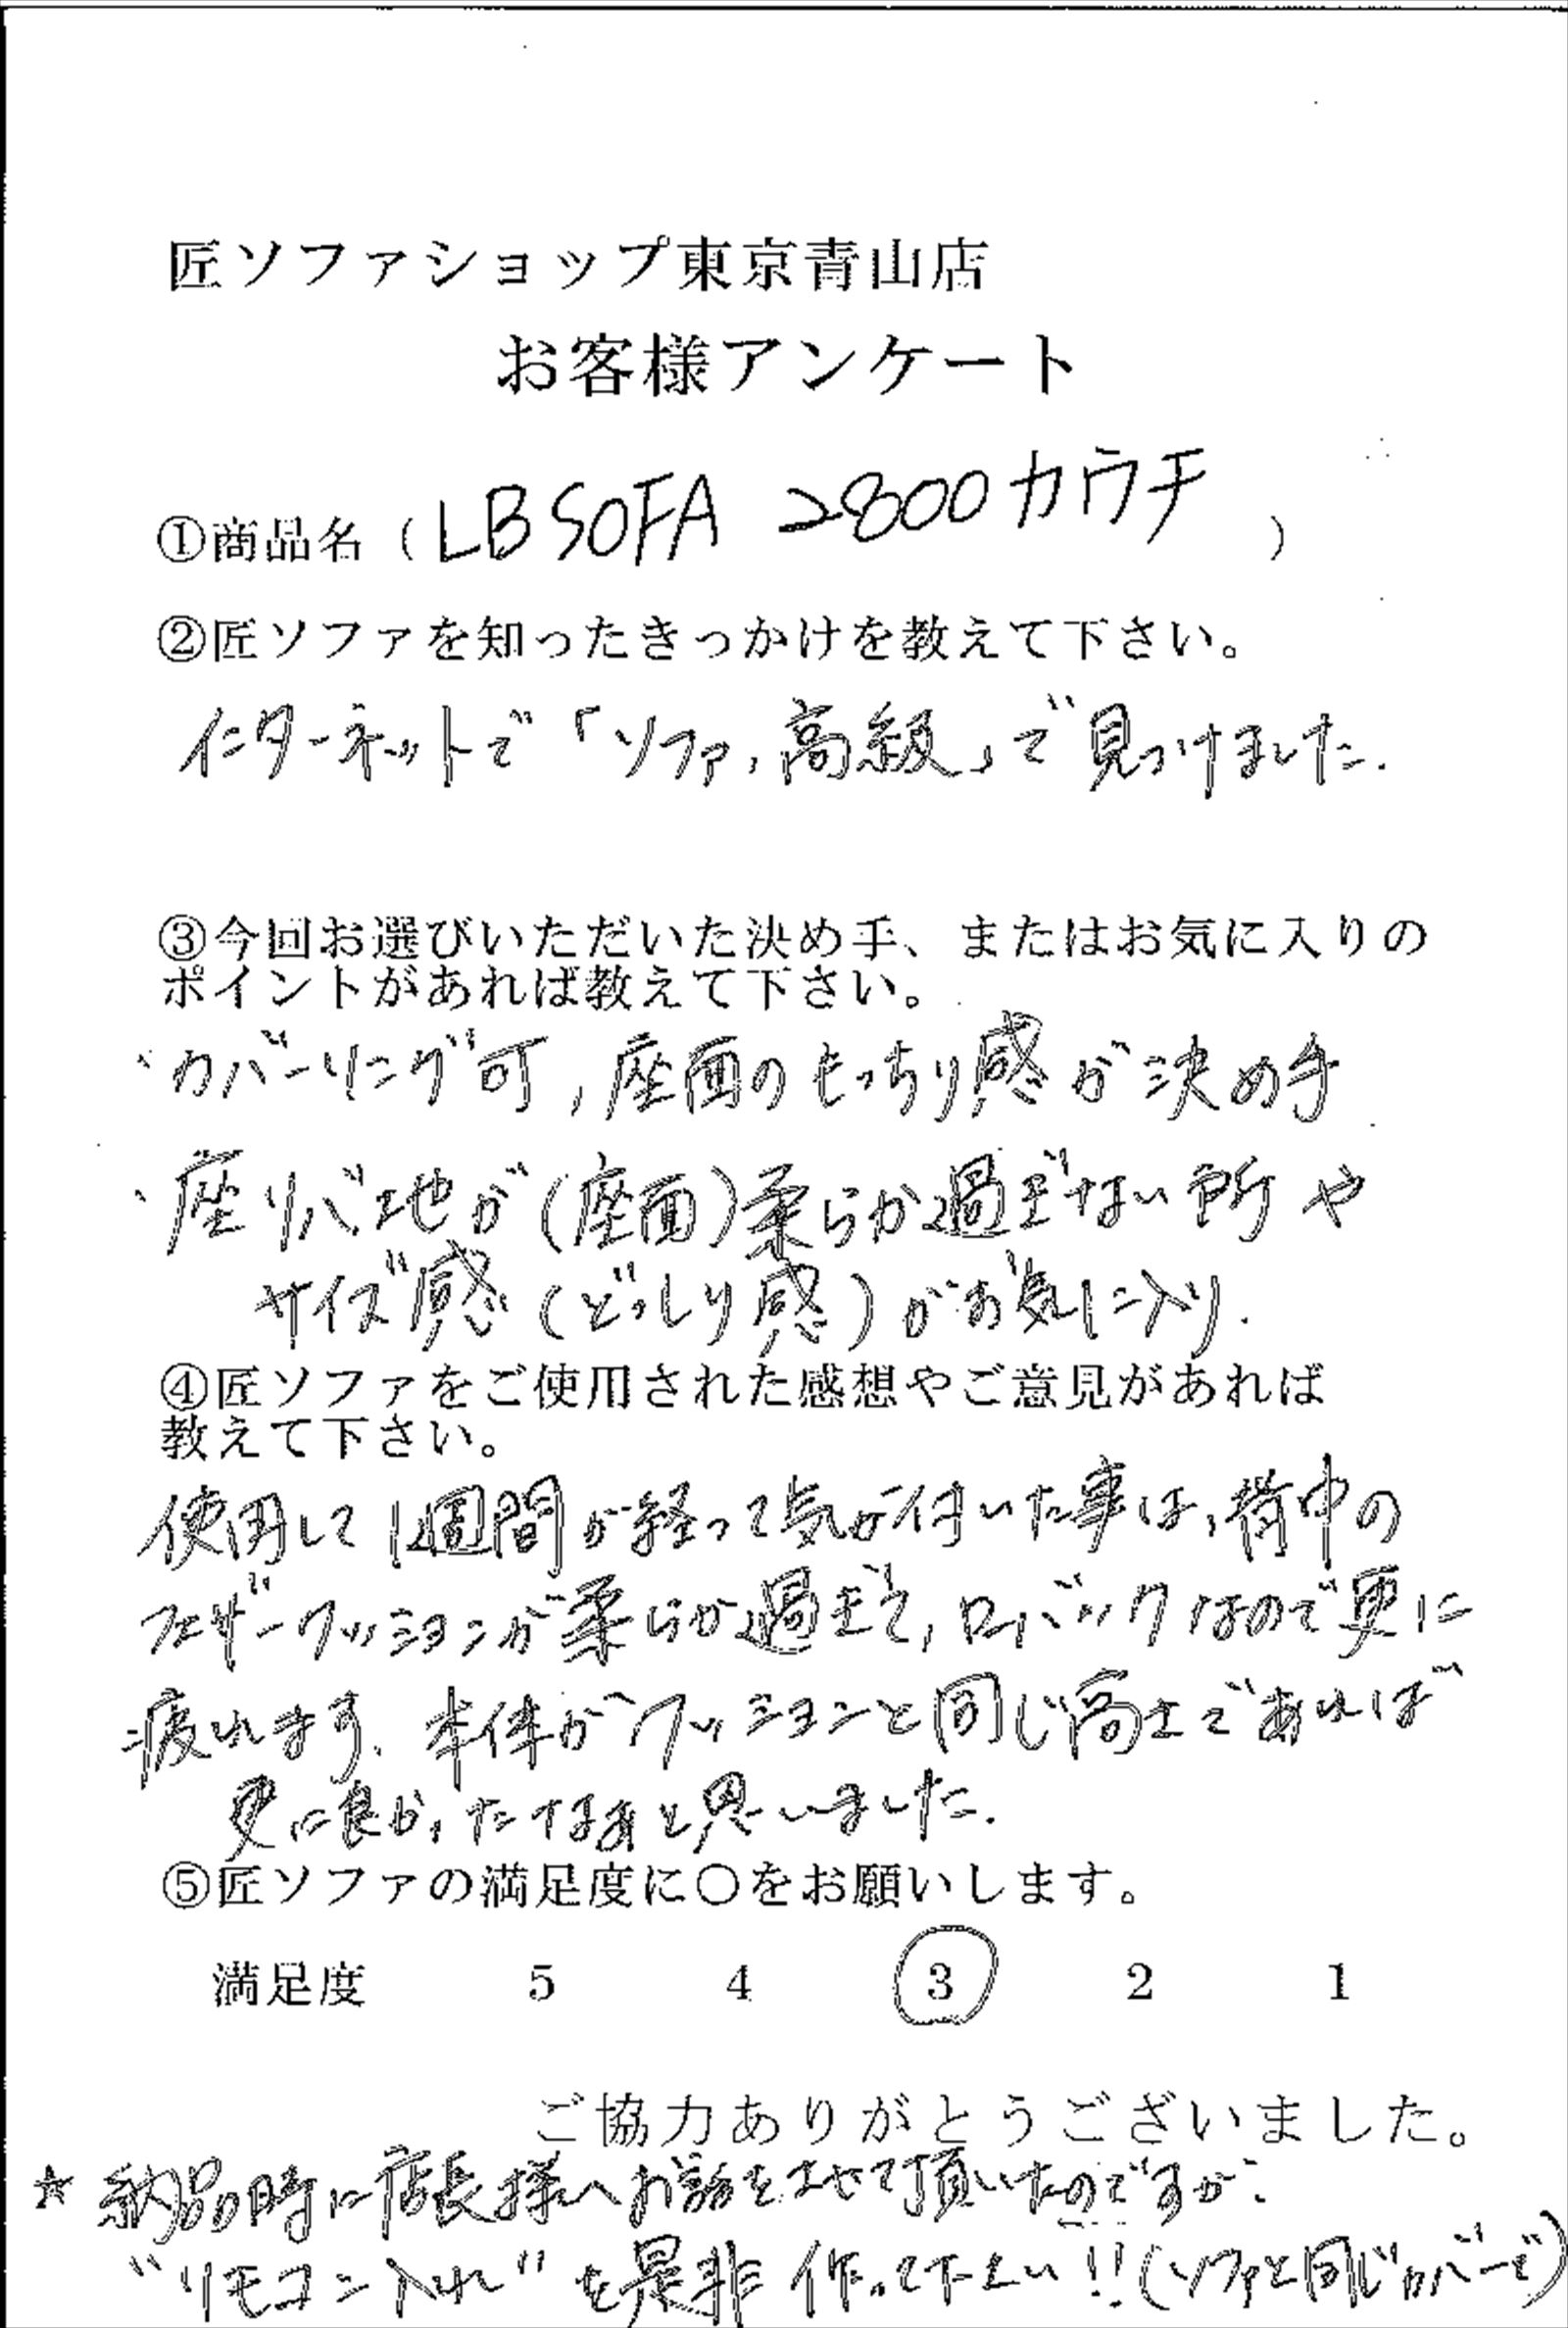 匠ソファショップ東京青山店
お客様アンケート
①商品名（LB SOFA 2800カウチ）
②匠ソファを知ったきっかけを教えて下さい。
インターネットで「ソファ,高級」で見つけました.
③今回お選びいただいた決め手、またはお気に入りの
ポイントがあれば教えて下さい。
・カバーリング可,座面のもっちり感が決め手
・座り心地が(座面)柔らか過ぎない所や
サイズ感(どっしり感)がお気に入り.
④匠ソファをご使用された感想やご意見があれば
教えて下さい。
使用して1週間が経って気が付いた事は,背中の
フェザークッションが柔らか過ぎて,ローバックなので更に
疲れます.本体がクッションと同じ高さであれば
更に良かったなあと思いました.
⑤匠ソファの満足度に○をお願いします。
満足度 5 4 3 2 1
ご協力ありがとうございました。
☆納品時に店長様へお話をさせて頂いたのですが、
"リモコン入れ"を是非作って下さい!!(ソファと同じカバーで)